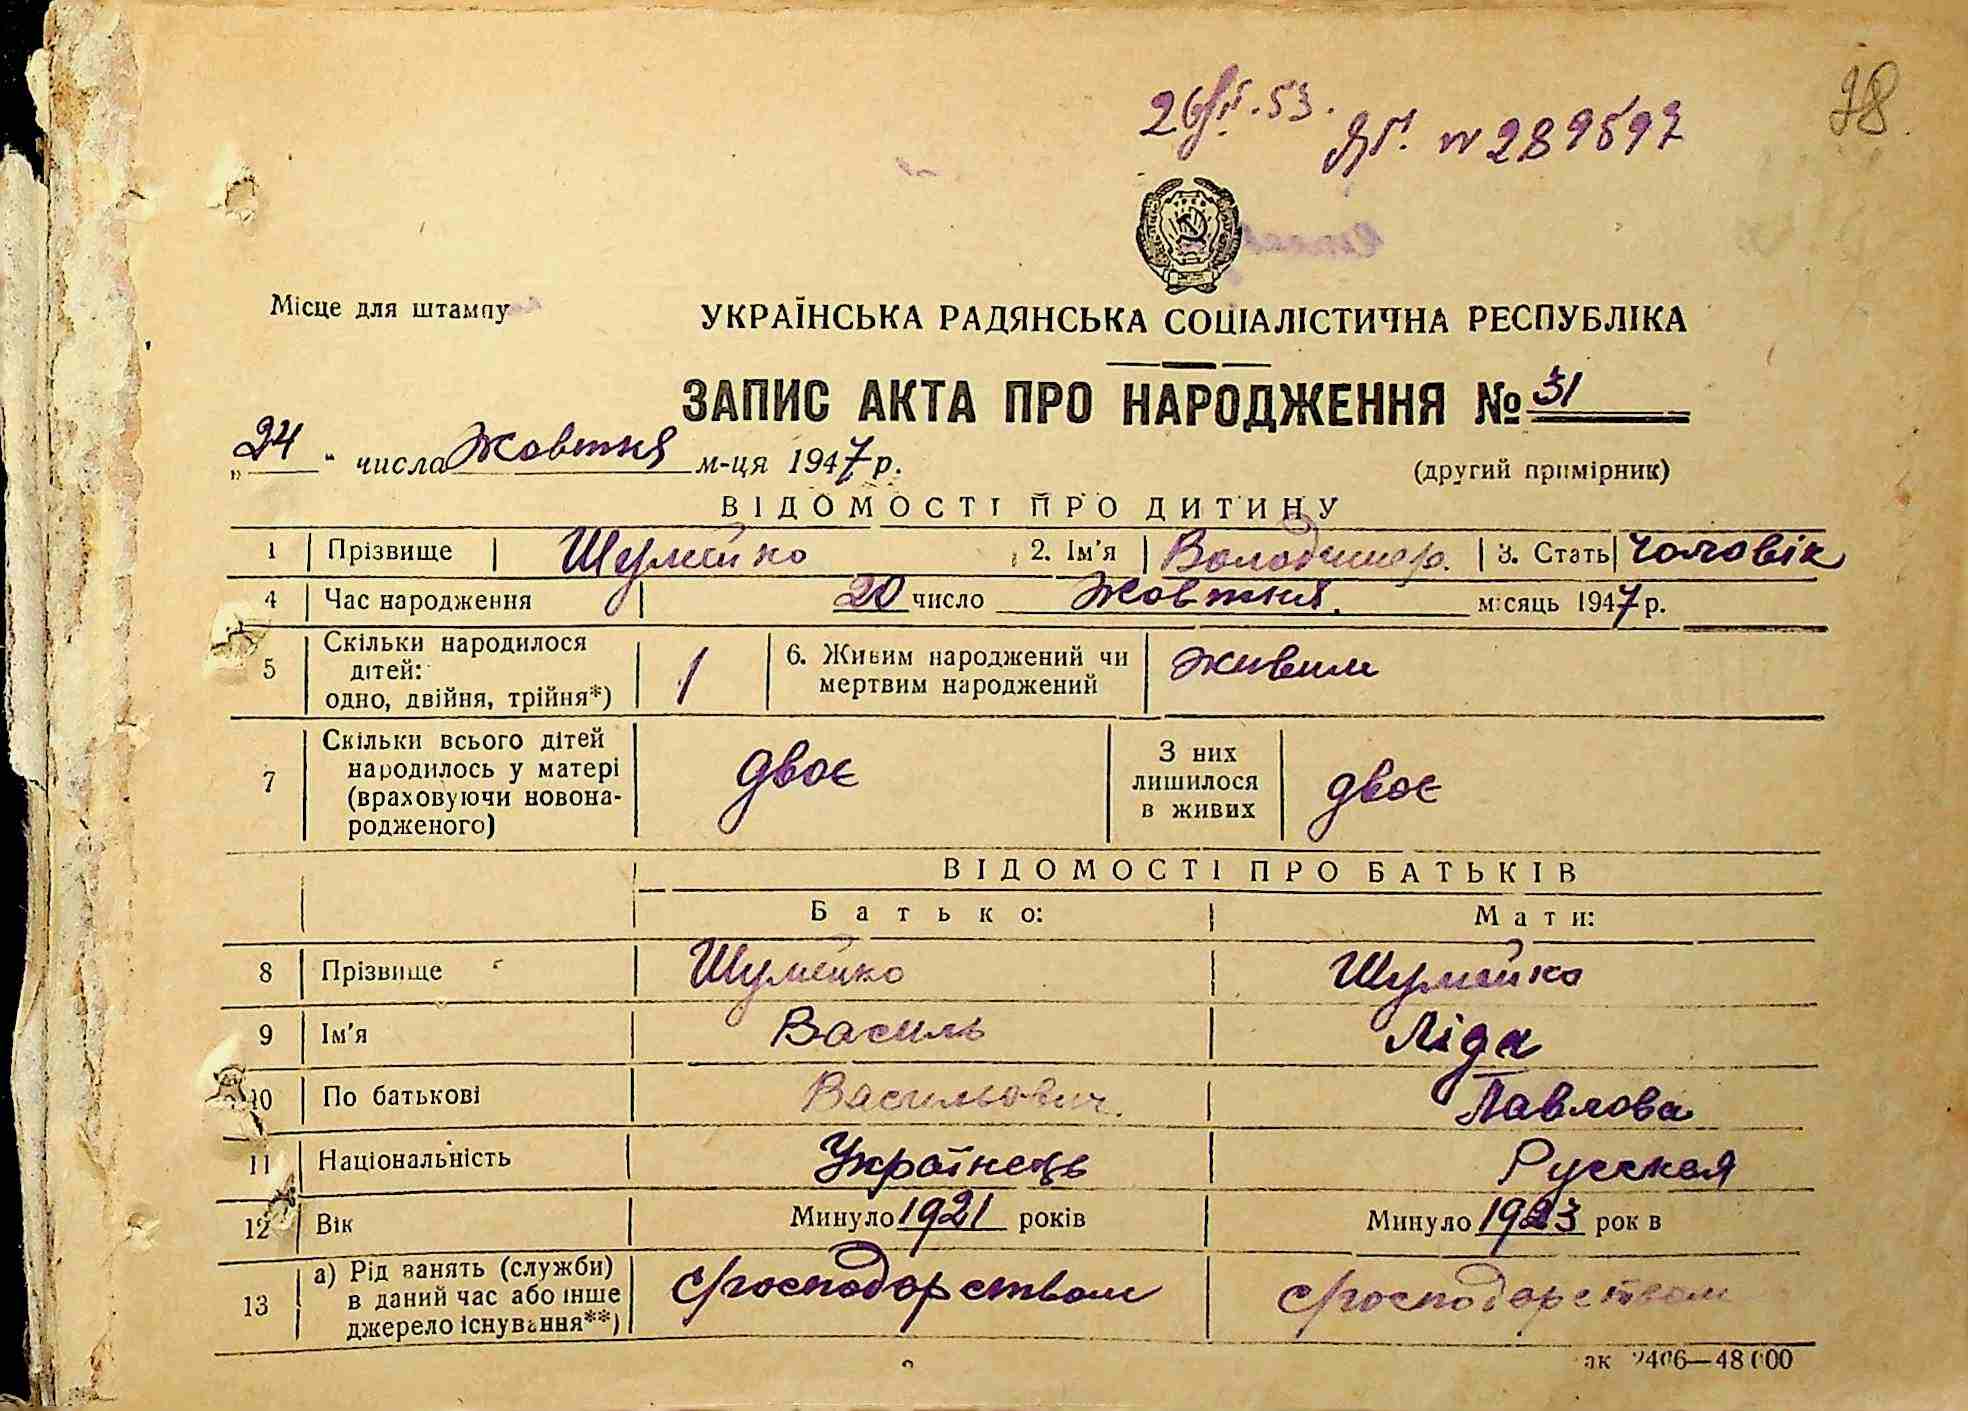 78
53. N 289597
Місце для штампу
УКРАЇНСЬКА РАДЯНСЬКА СОЦІАЛІСТИЧНА РЕСПУБЛІКА
ЗАПИС АКТА ПРО НАРОДЖЕННЯ № 31
„24" числа Жовтня м-ця 1947 р.
(другий примірник)
ВІДОМОСТІ ПРО ДИТИНУ
1 Прізвище Шумейко 2. Ім'я Володимир. 3. Стать чоловік
4 Час народження 20 число Жовтня. місяць 1947 р.
5 Скільки народилося дітей: одно, двійня, трійня*) 1 6. Живим народжений чи мертвим народжений живим
7 Скільки всього дітей народилось у матері (враховуючи новонародженого) двоє З них лишилося в живих двоє
ВІДОМОСТІ ПРО БАТЬКІВ
Батько: Мати:
8 Прізвище Шумейко Шумейко
9 Ім'я Василь Ліда
10 По батькові Васильович. Павлова
11 Національність Українець Русская
12 Вік Минуло 1921 років Минуло 1923 рок в
13 а) Рід занять (служби) в даний час або інше джерело існування**) с/господарством с/господарством
ак 2406—48 000